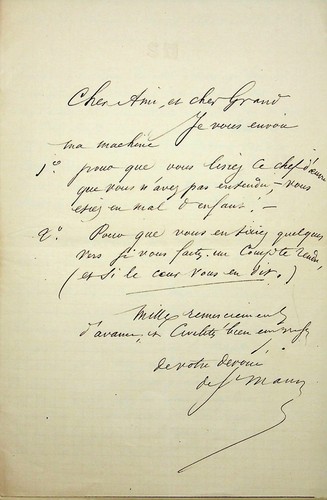 Cher Ami, et cher Grand
Je vous envoie
ma machine
1º pour que vous lisiez ce chef d'œuvre
que vous n'avez pas entendu, – vous
étiez en mal d'enfant! –
2º. Pour que vous en tiriez quelques
vers si vous faites un Compte rendu,
(et si le cœur vous en dit.)
Mille remerciements
d'avance, et bien
de votre dévoué
de St Maur